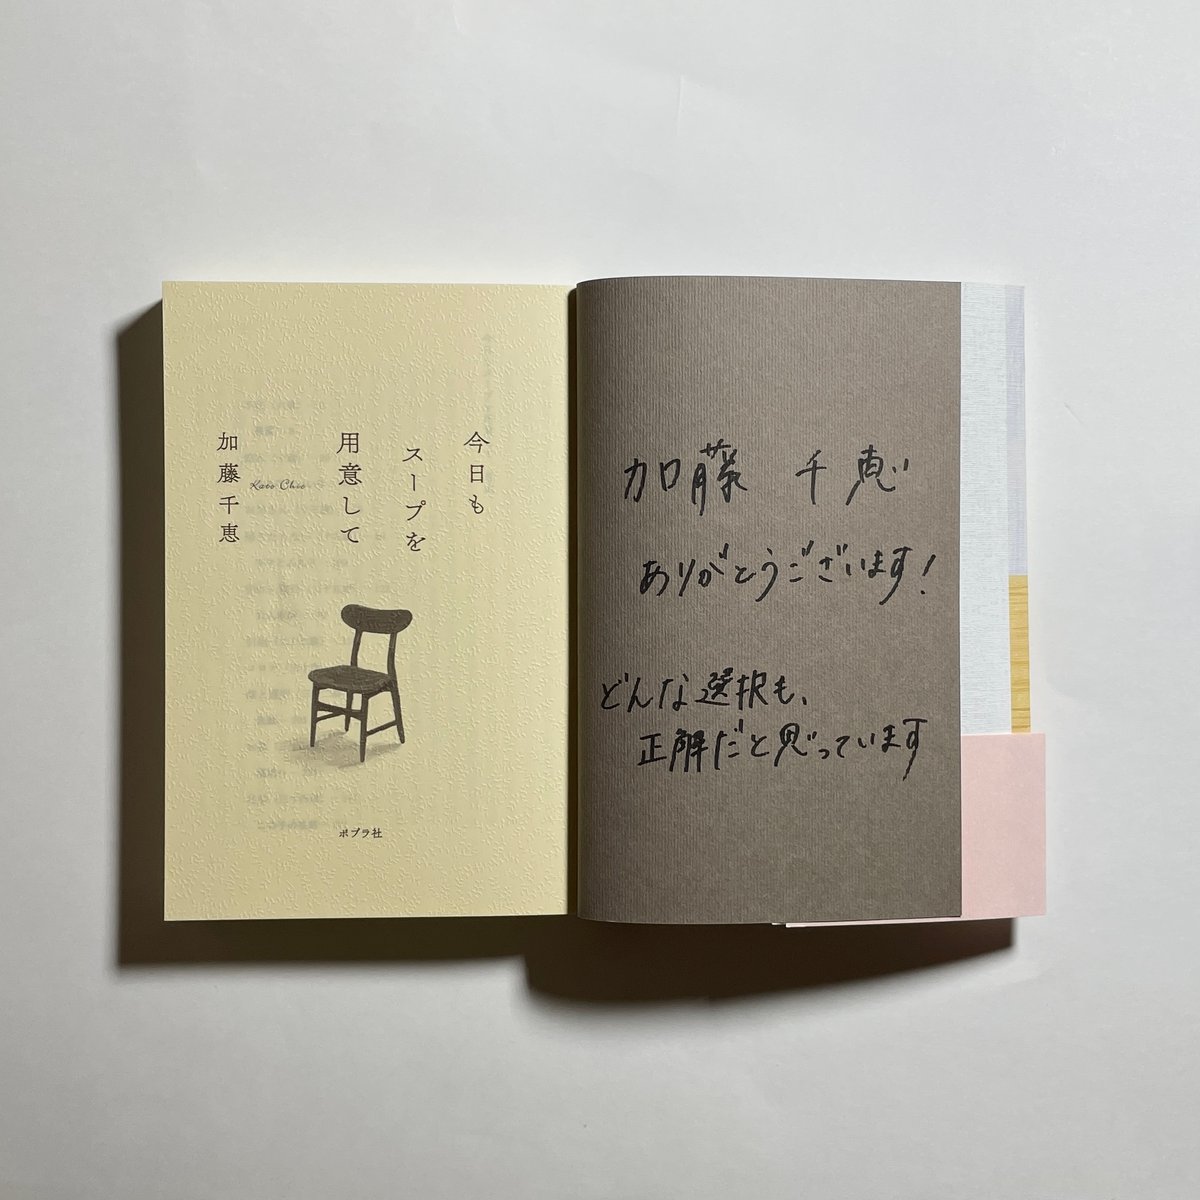 今日も
スープを
用意して
加藤千恵
Kato Chie
ポプラ社
加藤 千恵
ありがとうございます!
どんな選択も、
正解だと思っています